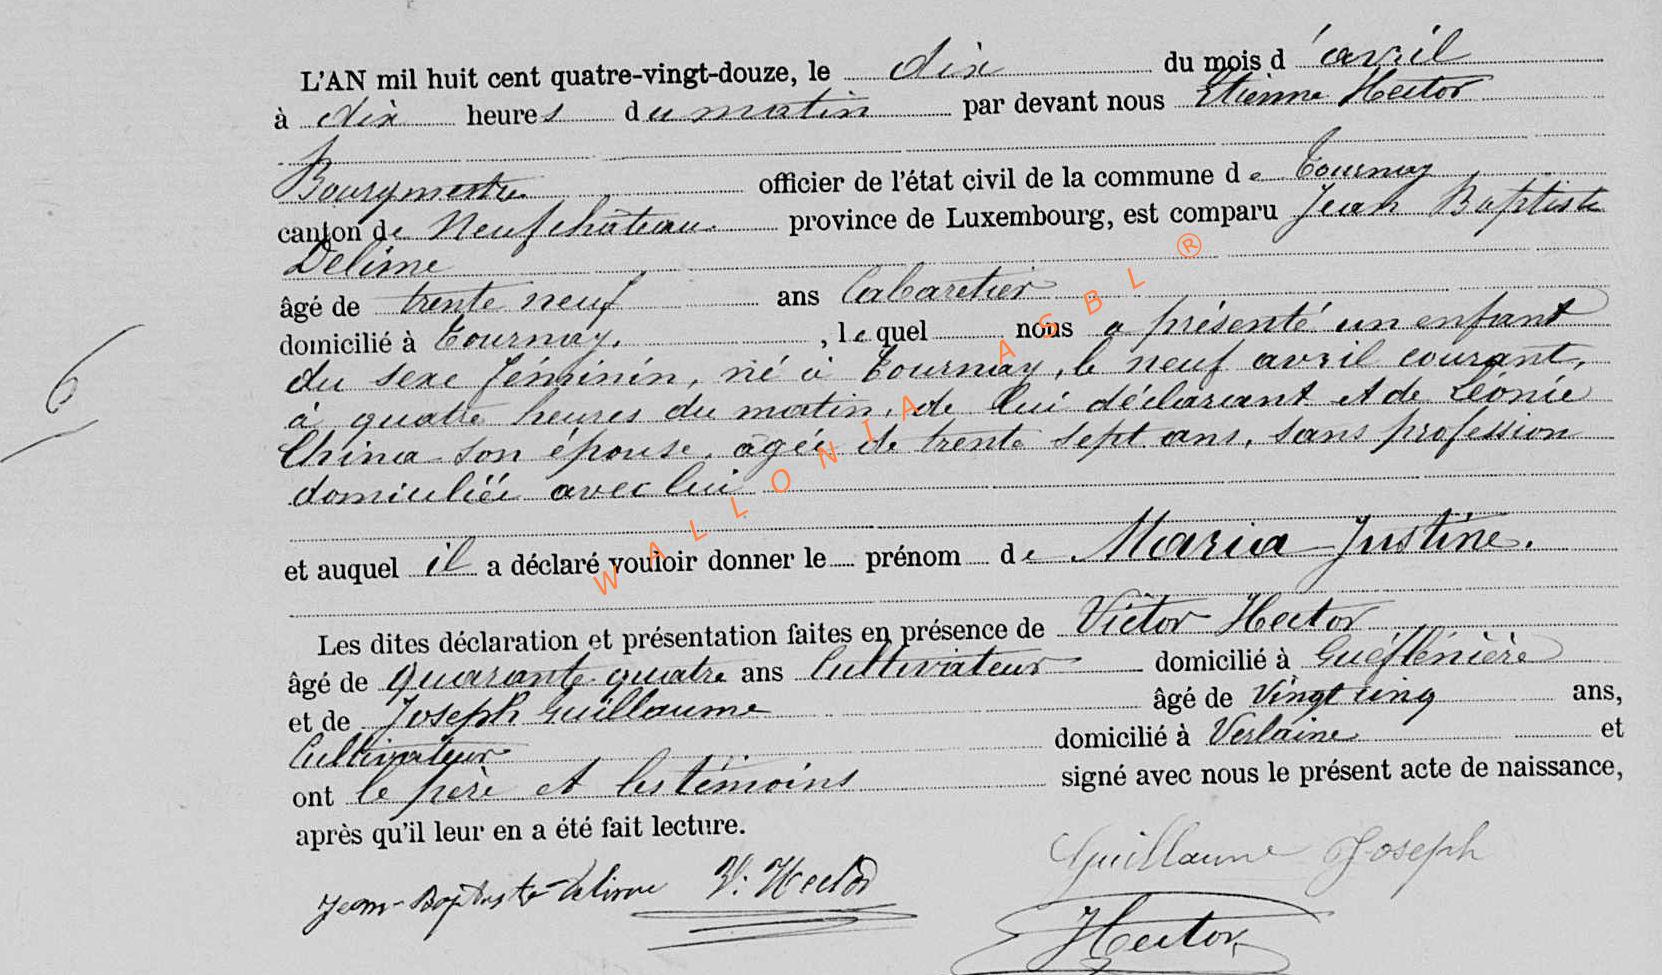 L'AN mil huit cent quatre-vingt-douze, le dix du mois d'avril
à dix heures du matin par devant nous Etienne Hector
Bourgmestre officier de l'état civil de la commune de Tournay
canton de Neufchâteau. province de Luxembourg, est comparu Jean Baptiste
Delime
âgé de trente neuf ans Cabaretier
domicilié à Tournay. , lequel nous a présenté un enfant
du sexe féminin, né à Tournay, le neuf avril courant,
à quatre heures du matin, de lui déclarant et de Léonie
China son épouse, agée de trente sept ans, sans profession
domiciliée avec lui
et auquel il a déclaré vouloir donner le prénom de Maria Justine.
Les dites déclaration et présentation faites en présence de Victor Hector
âgé de quarante quatre ans Cultivateur domicilié à
et de Joseph Guillaume âgé de vingt cinq ans,
Cultivateur domicilié à Verlaine et
ont le père et les témoins signé avec nous le présent acte de naissance,
après qu'il leur en a été fait lecture.
Jean-Baptiste Delime V. Hector Guillaume Joseph
Hector
6
WALLONIA ASBL ®